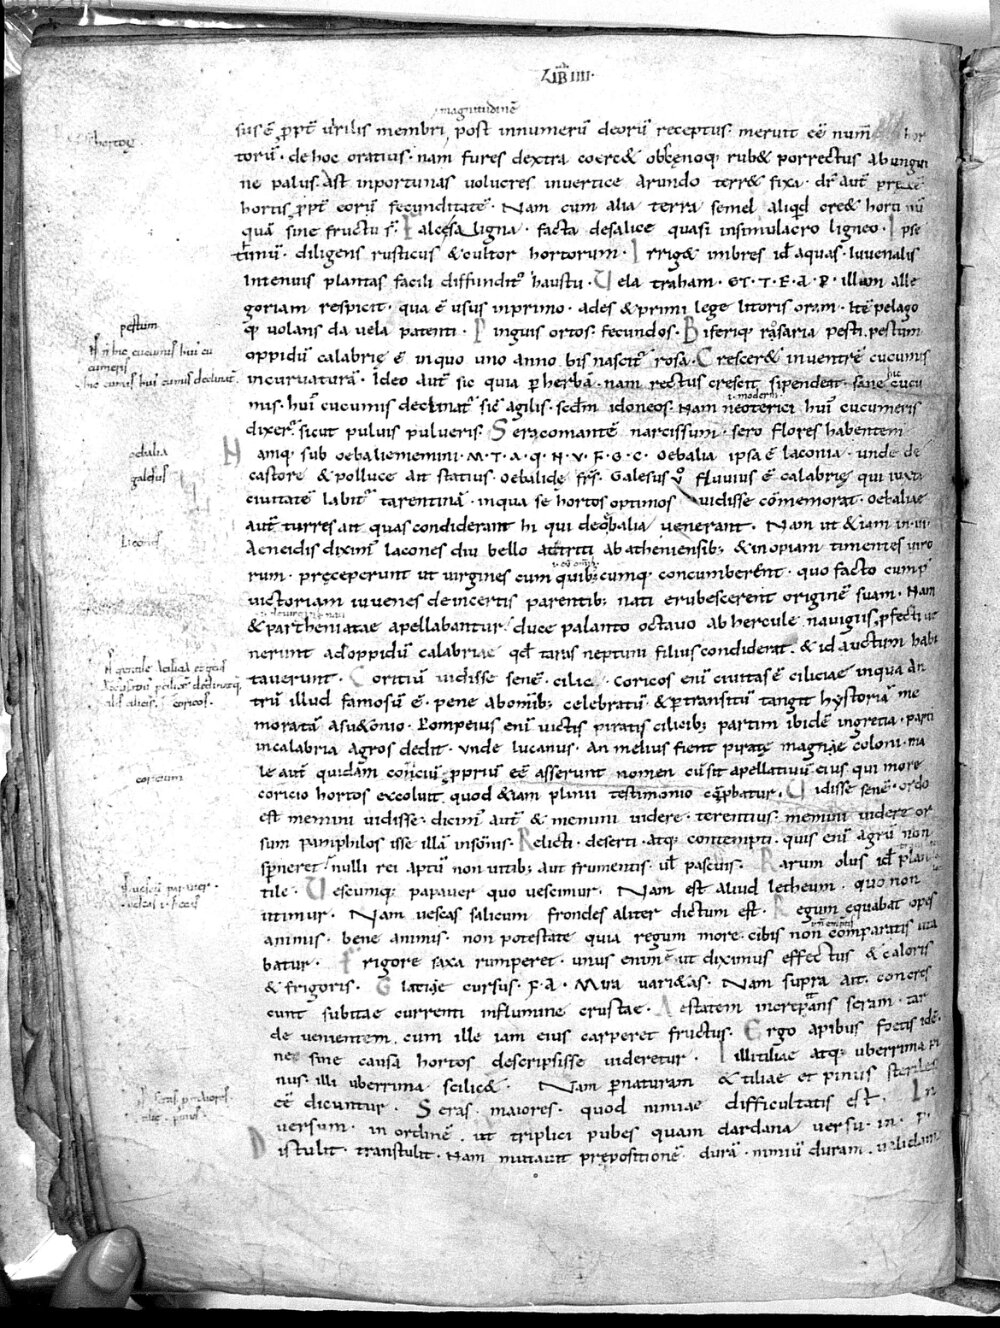 LIB IIII·
magnitudinē
sus ē ꝓpt̄ uirilis membri post innumerū deorū receptus· meruit eē num̄ hor
hortoꝝ
torū· de hoc oratius· nam fures dextra coerc& obscenoq; rub& porrectus ab ingui
ne palus· Ast inportunas uolucres inuertice arundo terr& fixa· dr̄ aut̄
hortis ꝓpt̄ eorū fecunditatē· Nam cum alia terra semel aliqd̄ cre& horti nū
quā sine fructu sī· Falcē saligna· facta desalice quasi insimulacro ligneo· Ipse
timū· diligens rusticus & cultor hortorum· Irrig& imbres id̄ aquas· Iuuenalis
Intenuis plantas facili diffundit᷒ haustu· Vela traham· ET· T· F· A· P· illam alle
goriam respicit· qua ē usus inprimo· ades & primi lege litoris oram· Itē pelago
q; uolans da uela patenti· Pinguis ortos· fecundos· Biferiq; rosaria pesti· pestum
pestum
oppidū calabrię ē inquo uno anno bis nascit᷒ rosa· Cresceret inuentrē cucumis
ñ hic cucumis hui᷒ cu
cumeris
hic cumis hui᷒ cumis declinat᷒
incuruaturā· Ideo aut̄ sic quia ꝑ herbā· nam rectus crescit sipendeat· sane hic cucu
i· moderni
mis· hui᷒ cucumis declinat᷒ sic᷒ agilis· scdm̄ idoneos· Nam neoterici hui᷒ cucumeris
dixer᷒· sicut puluis pulueris· Seracomantē narcissum· sero flores habentem
Namq; sub oebaliememini· M· T· A· Q· N· V· F· G· C· oebalia ipsa ē laconia· unde de
oebalia
castore & polluce ait statius· oebalide frs̄· Galesus ū fluuius ē calabrię qui iuxta
galesus
ciuitatē labit᷒ tarentinā· inqua se hortos optimos uidisse cōmemorat· oebaliae
aut̄ turres ait quas condiderant hi qui deoebalia uenerant· Nam ut & iam in·iii·
Aeneidis diximus lacones diu bello attriti ab atheniensib; & inopiam timentes uiro
Lacones
rum· pręceperunt ut uirgines eum quib;cumq; concumberent· quo facto cump᷒
uictoriam iuuenes deincertis parentib; nati erubescerent originē suam· Nam
& partheniatae apellabantur duce palanto octauo ab hercule nauigiis ꝓfecti ue
nerunt ad oppidū calabriae qd̄ taras neptuni filius condiderat· & id auctum habi
tauerunt· Coritiū uidisse senē· cilice· coricos eni᷒ ciuitas ē ciliciae inqua an
trū illud famosū ē· pene abomīb; celebratū & ꝑ transitū tangit hystoriā me
moratā asu&onio· Pompeius eni᷒ uictis piratis cilicib; partim ibidē ingretia· parti
incalabria agros dedit· Vnde lucanus· An melius fient piratę magnae coloni· ma
le aut̄ quidam coricui ꝓpriū eē asserunt nomen cū sit apellatiuū eius qui more
coricium
coricio hortos excoluit· quod &iam plinii testimonio cōꝓbatur· Vidisse senē· ordo
est memini uidisse· dicim᷒ aut̄ & memini uidere· terentius· memini uidere or
sum pamphilos isse illā insomis· Relicti· deserti· atq; contempti· quis eni᷒ agrū non
sꝑneret nulli rei aptū non uitib; aut frumentis· ul̄ pascuis· Rarum olus id̄ plan
tile· Vescumq; papauer quo uescimur· Nam est aliud letheum· quo non
utimur· Nam uescas salicum frondes aliter dictum est· Regum equabat opes
animis· bene animis· non potestate quia regum more cibis non comparatis uta
batur· Frigore saxa rumperet· unus enim ē ut diximus effectus & caloris
& frigoris· Glatiae cursus· F·A· Mira uari&as· Nam supra ait· concres
cunt subitae currenti influmine crustae· Aestatem increpitans seram· tar
de uenientem· cum ille iam eius carperet fructus· Ergo apibus foetis idē·
nec sine causa hortos descripsisse uideretur· Illi tiliae atq; uberrima pi
nus· illi uberrima scilic&· Nam ꝑ naturam & tiliae et pinus steriles
eē dicuntur· Seras· maiores· quod nimiae difficultatis est· In
uersum· in ordinē· ut triplici pubes quam dardana uersu· in·
Distulit· transtulit· Nam mutauit prępositionē· durā· nimiū duram· ualidam